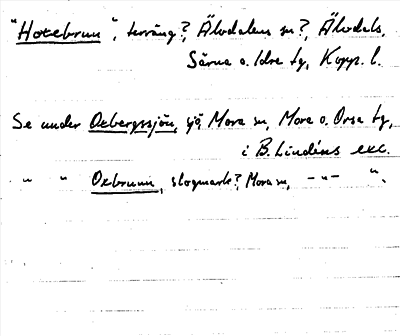 "Hotebrun", terräng?, Älvdalens sn?, Älvdals,
Särna o. Idre tg, Kopp. l.
Se under Oxbergssjön, sjö, Mora sn, Mora o. Orsa tg,
i B. Lindéns exc.
" " Oxbrunn, slogmark? Mora sn, -"- ".